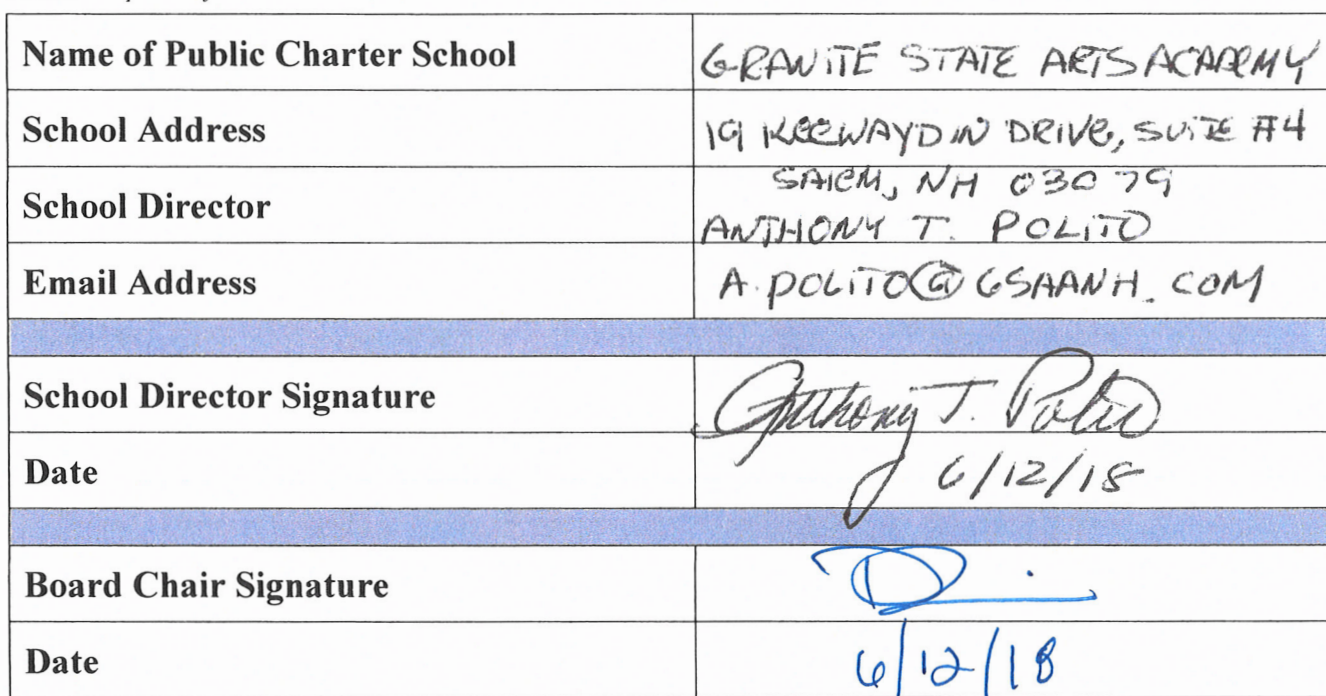 Name of Public Charter School GRANITE STATE ARTS ACADEMY
School Address 19 KEEWAYDIN DRIVE, SUITE #4
SALEM, NH 03079
School Director ANTHONY T. POLITO
Email Address A.POLITO@GSAANH.COM
School Director Signature Anthony T. Polito
Date 6/12/18
Board Chair Signature
Date 6/12/18